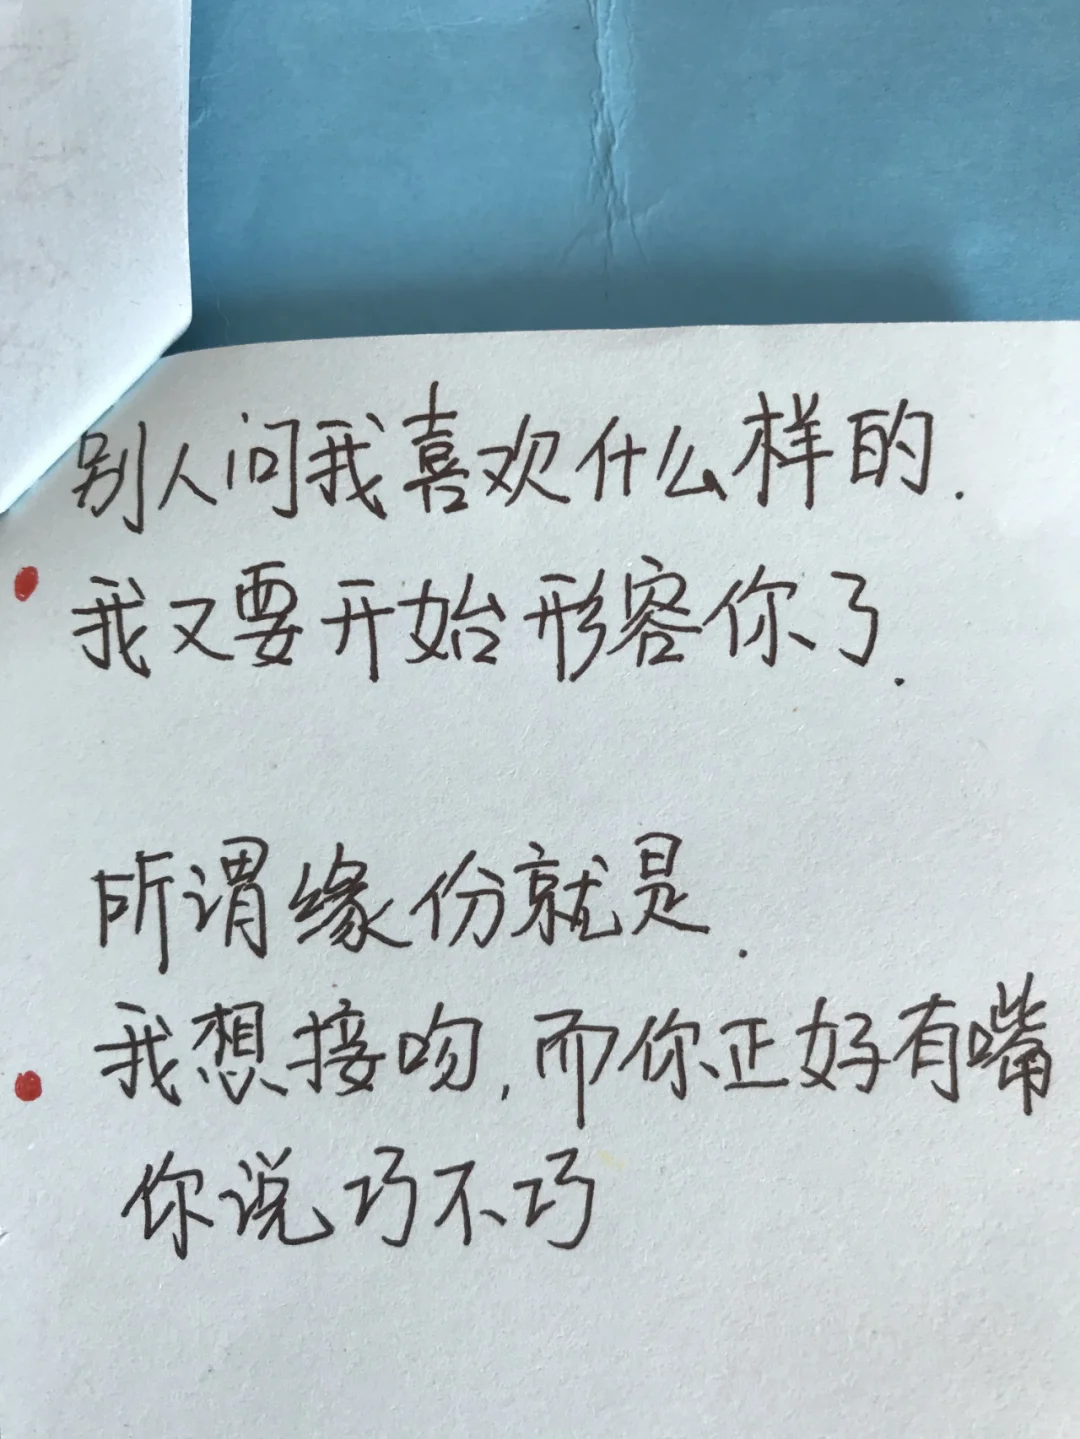 别人问我喜欢什么样的.
我又要开始形容你了.
所谓缘份就是.
我想接吻,而你正好有嘴
你说巧不巧